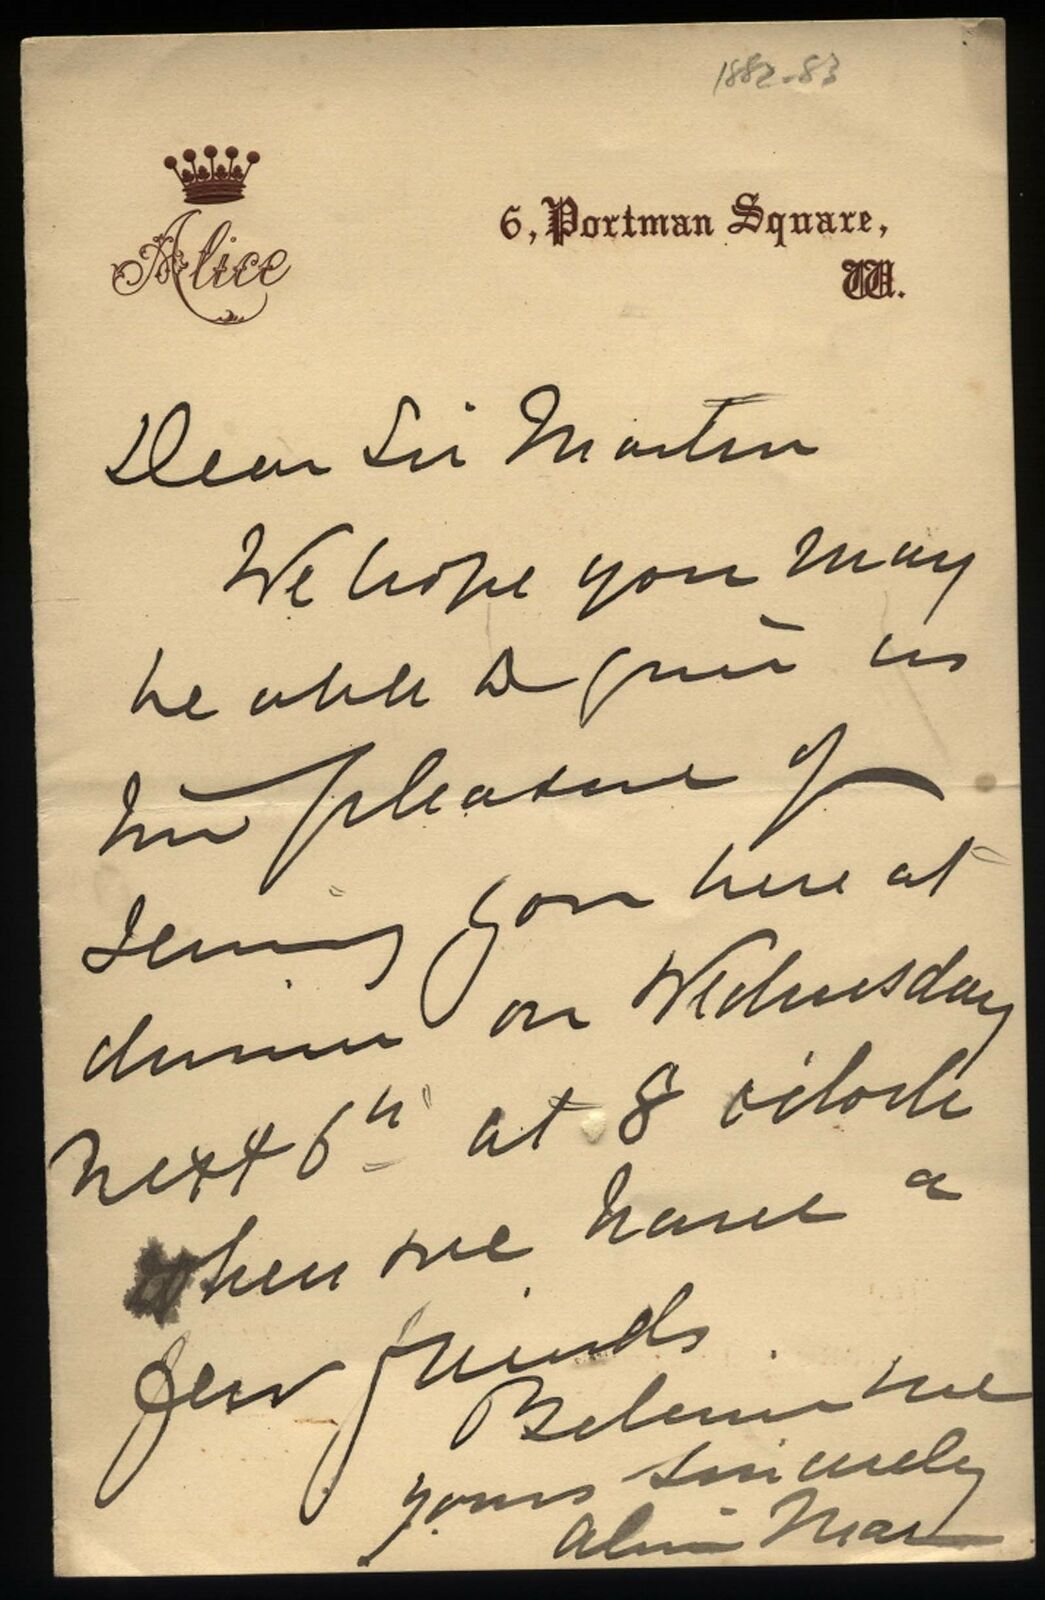 1882-83
Alice
6, Portman Square,
W.
Dear Sir Martin
We hope you may
be able to give us
the pleasure of
seeing you here at
dinner on Wednesday
next 6th at 8 o'clock
when we have a
few friends
Believe me
yours sincerely
Alice Mar